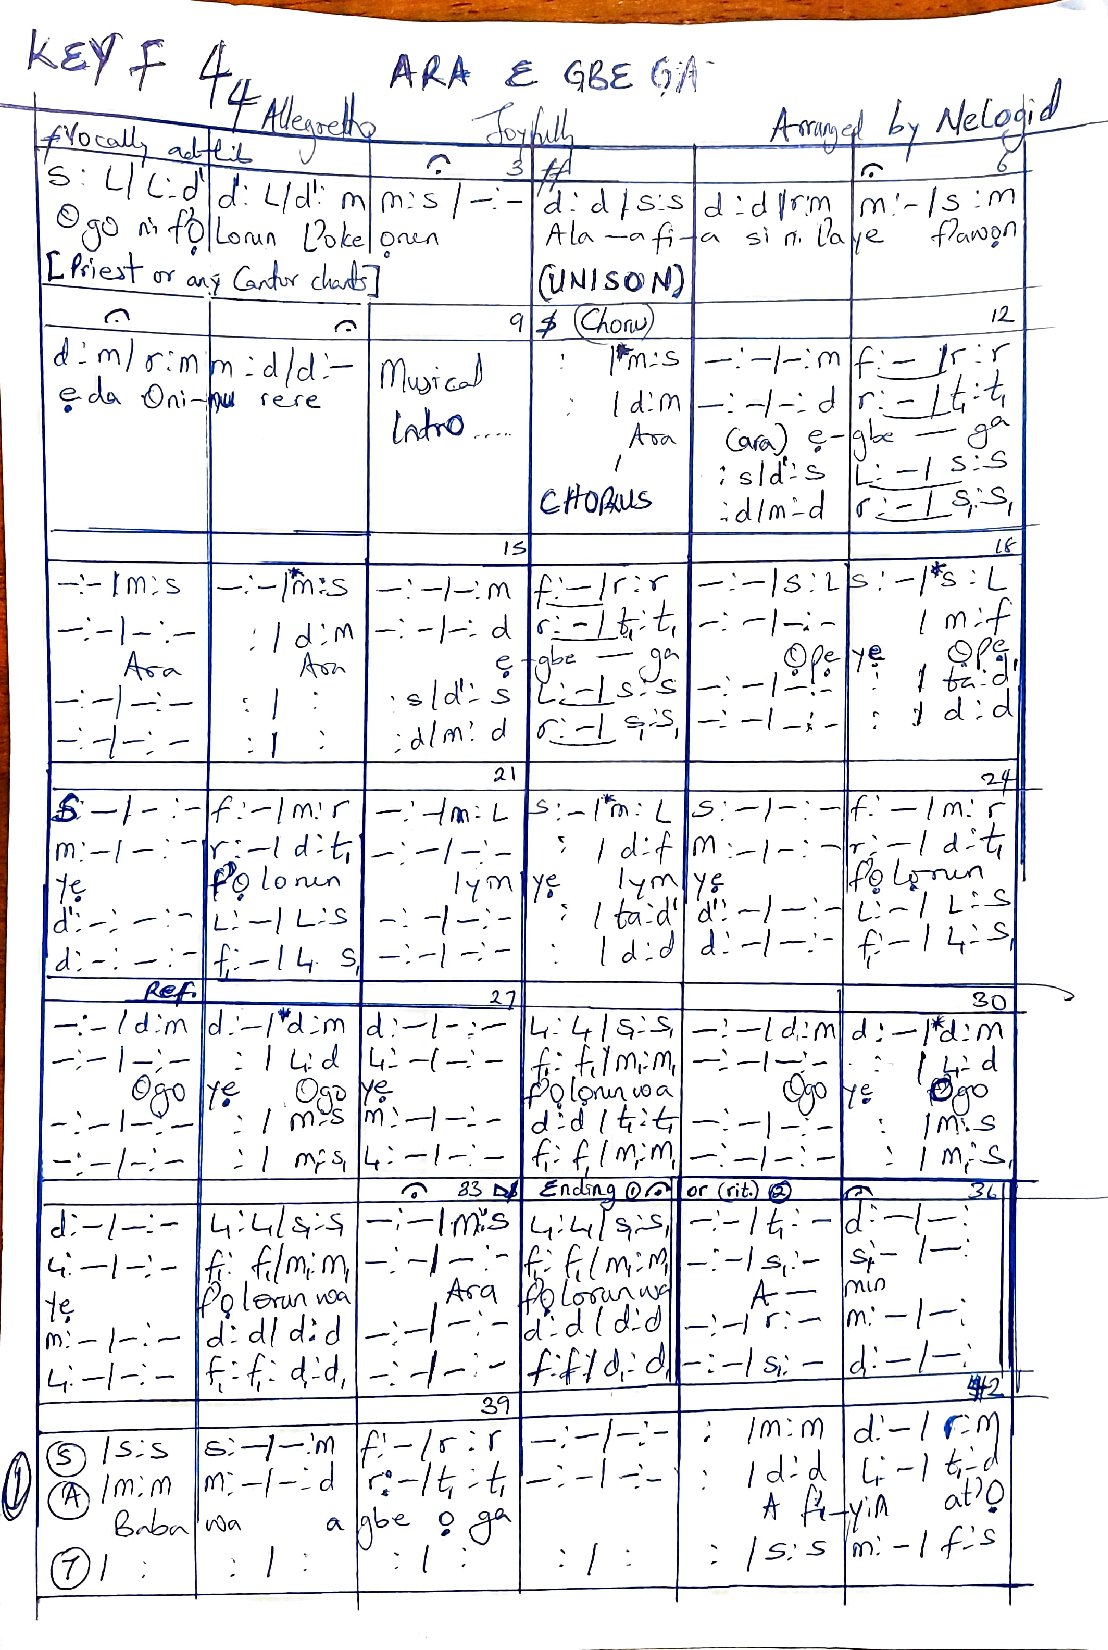 KEY F 4/4 ARA E GBE GA
Allegretto Joyfully Arranged by Nelogid
Vocally ad-lib 3 ff 6
s : L / L : d' d : L / d' : m m : s / - : - d : d / s : s d : d / r : m m : - / s : m
Ogo ni fỌ lorun Loke orun Ala-a fi-a si ni laye fawọn
[Priest or any Cantor chants] (UNISON)
9 (Chorus) 12
d : m / r : m m : d / d : - Musical : / *m : s - : - / - : m f : - / r : r
ẹda Oni- rere Intro..... : / d : m - : - / - : d r : - / t, : t,
Ara (ara) ẹ-gbe — ga
: s / d' : s L : - / s : s
CHORUS : d / m : d r : - / s, : s,
15 18
- : - / m : s - : - / *m : s - : - / - : m f : - / r : r - : - / s : L s : - / *s : L
- : - / - : - : / d : m - : - / - : d r : - / t, : t, - : - / - : - / m : f
Ara Ara ẹ-gbe — ga Ọpẹ yẹ Ọpẹ
- : - / - : - : / : : s / d' : s L : - / s : s - : - / - : - : / ta : d'
- : - / - : - : / : : d / m : d r : - / s, : s, - : - / - : - : / d : d
21 24
s : - / - : - f : - / m : r - : - / m : L s : - / *m : L s : - / - : - f : - / m : r
m : - / - : - r : - / d : t, - : - / - : - : / d : f m : - / - : - r : - / d : t,
yẹ fỌlorun Iyin yẹ Iyin yẹ fỌlorun
d' : - : - : - L : - / L : s - : - / - : - : / ta : d' d' : - / - : - L : - / L : s
d : - : - : - f, : - / L, s, - : - / - : - : / d : d d : - / - : - f, : - / L, : s,
Ref. 27 30
- : - / d : m d : - / *d : m d : - / - : - L, : L, / s, : s, - : - / d : m d : - / *d : m
- : - / - : - : / L, : d L, : - / - : - f, : f, / m, : m, - : - / - : - : / L, : d
Ogo yẹ Ogo yẹ fỌlorun wa Ogo yẹ Ogo
- : - / - : - : / m : s m : - / - : - d : d / t, : t, - : - / - : - : / m : s
- : - / - : - : / m, : s, L, : - / - : - f, : f, / m, : m, - : - / - : - : / m, : s,
33 Ending ① or (rit.) ② 36
d : - / - : - L, : L, / s, : s, - : - / m : s L, : L, / s, : s, - : - / t, : - d : - / - :
L, : - / - : - f, : f, / m, : m, - : - / - : - f, : f, / m, : m, - : - / s, : - s, : - / - :
yẹ fỌlorun wa Ara fỌlorun wa A — min
m : - / - : - d : d / d : d - : - / - : - d : d / d : d - : - / r : - m : - / - :
L, : - / - : - f, : f, : d, : d, - : - / - : - f, : f, / d, : d, - : - / s, : - d : - / - :
39 42
Ⓢ / s : s s : - / - : m f : - / r : r - : - / - : - : / m : m d : - / r : m
① Ⓐ / m : m m : - / - : d r : - / t, : t, - : - / - : - : / d : d L, : - / t, : d
Baba wa a gbe ọ ga A fi-yin at'Ọ
Ⓣ / : : / : : / : : / : : / s : s m : - / f : s